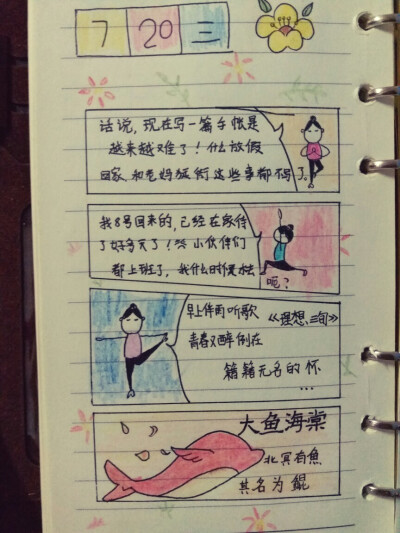 7 20 三
话说,现在写一篇手帐是
越来越难了!什么放假
回家,和老妈逛街这些事都不写了。
我8号回来的,已经在家待
了好多天了!然小伙伴们
都上班了,我什么时候是
呢?
早上伴雨听歌《理想三旬》
青春又醉倒在
籍籍无名的怀
...
大鱼海棠
北冥有鱼
其名为鲲